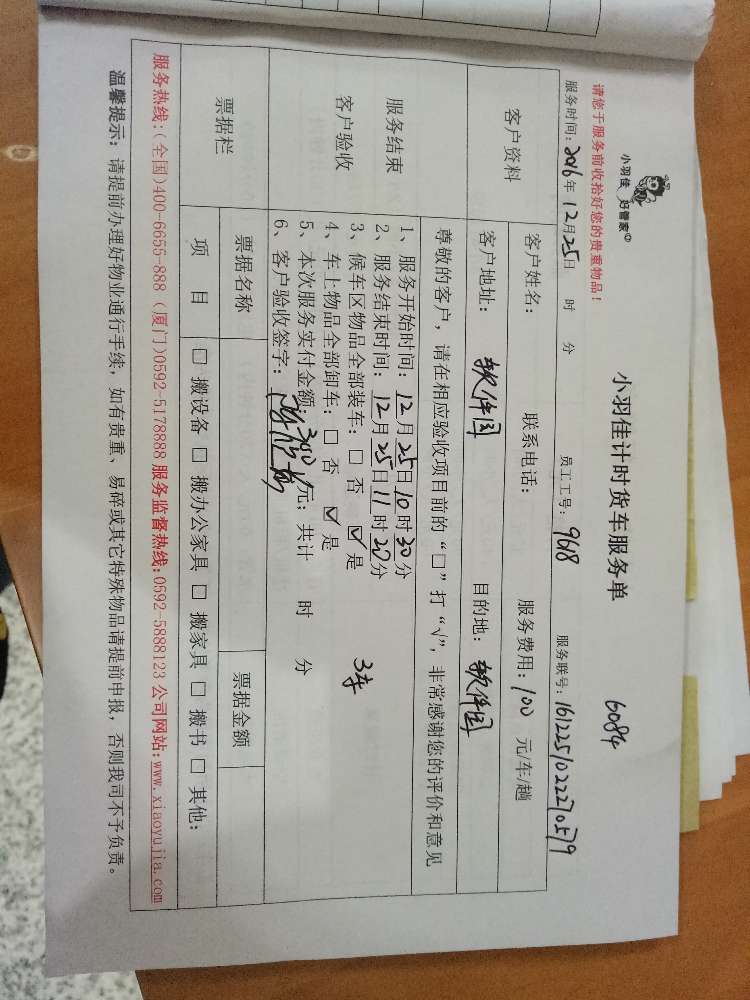 小羽佳 好管家
小羽佳计时货车服务单
6084
请您于服务前收拾好您的贵重物品!
服务时间: 2016年12月25日 时 分 员工工号: 9618 服务联号: 1612251022270579
客户资料
客户姓名: 联系电话: 服务费用: 100 元/车/趟
客户地址: 软件园 目的地: 软件园
服务结束
客户验收
尊敬的客户,请在相应验收项目前的“□”打“√”,非常感谢您的评价和意见
1、服务开始时间: 12月25日10时30分
2、服务结束时间: 12月25日11时20分
3、候车区物品全部装车: □ 否 ☑ 是
4、车上物品全部卸车: □ 否 ☑ 是
3车
5、本次服务实付金额: 300元; 共计 时 分
6、客户验收签字:
票据栏
票据名称 票据金额
项 目 □ 搬设备 □ 搬办公家具 □ 搬家具 □ 搬书 □ 其他:
服务热线:(全国)400-6655-888 (厦门)0592-5178888 服务监督热线:0592-5888123 公司网站:www.xiaoyujia.com
温馨提示: 请提前办理好物业通行手续, 如有贵重、易碎或其它特殊物品请提前申报, 否则我司不予负责。